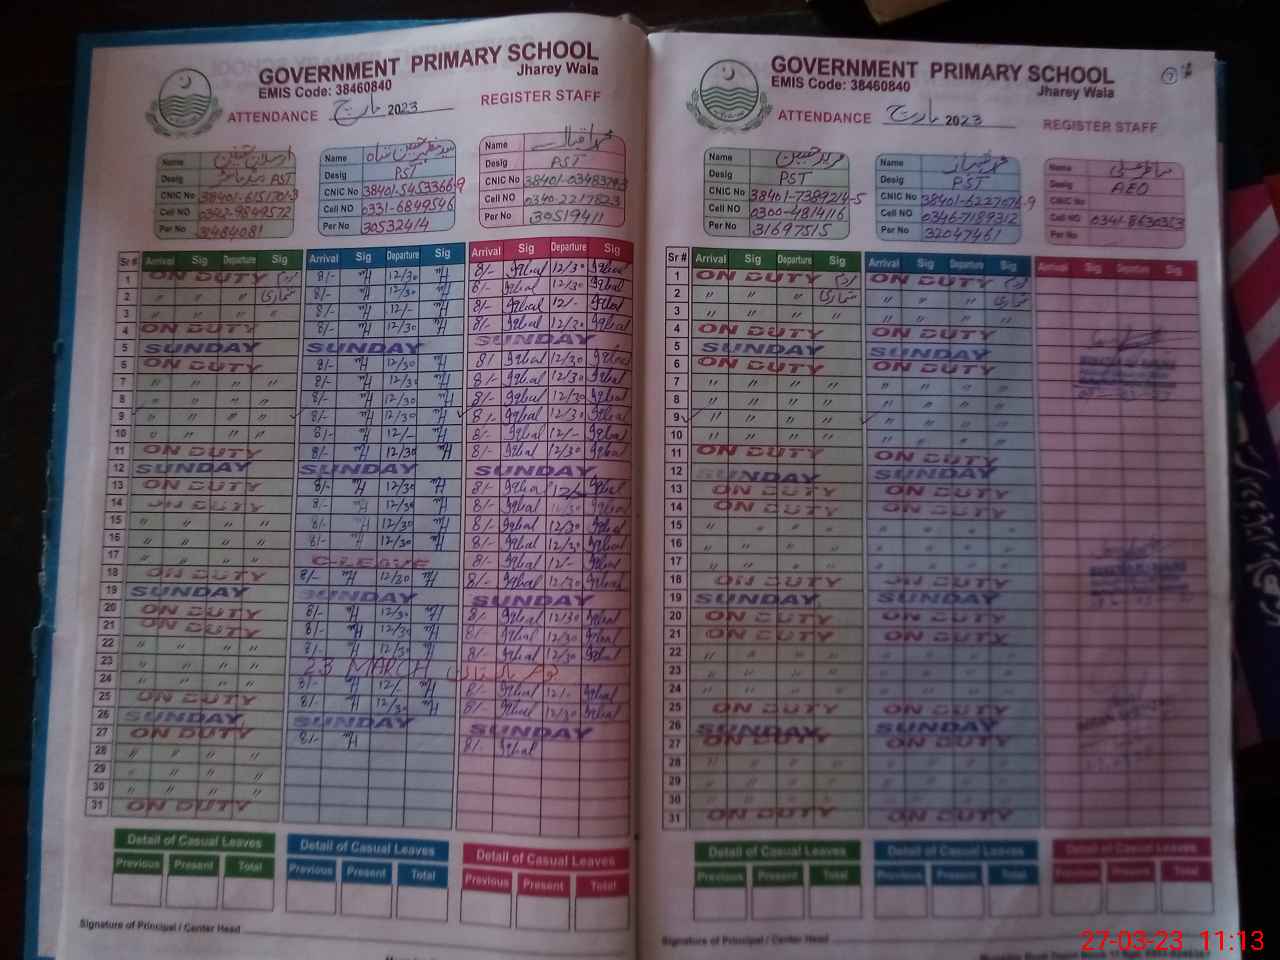 GOVERNMENT PRIMARY SCHOOL
Jharey Wala
EMIS Code: 38460840
ATTENDANCE مارچ 2023 REGISTER STAFF
Name
Desig PST
CNIC No 38401-6151701-3
Cell NO 0342-9849572
Per No 3484081
Name سید حسین شاہ
Desig PST
CNIC No 38401-5453366-9
Cell NO 0331-6849546
Per No 30532414
Name محمد اقبال
Desig PST
CNIC No
Cell NO 0340-2217823
Per No 30519411
Sr # Arrival Sig Departure Sig Arrival Sig Departure Sig Arrival Sig Departure Sig
1 ON DUTY 8/- 12/30 8/- Iqbal 12/30 Iqbal
2 " " " 8/- 12/30 8/- Iqbal 12/30 Iqbal
3 " " " " 8/- 12/- 8/- Iqbal 12/- Iqbal
4 ON DUTY 8/- 12/30 8/- Iqbal 12/30 Iqbal
5 SUNDAY SUNDAY SUNDAY
6 ON DUTY 8/- 12/30 8/- Iqbal 12/30 Iqbal
7 " " " " 8/- 12/30 8/- Iqbal 12/30 Iqbal
8 " " " " 8/- 12/30 8/- Iqbal 12/30 Iqbal
9 " " " " 8/- 12/30 8/- Iqbal 12/30 Iqbal
10 " " " " 8/- 12/- 8/- Iqbal 12/- Iqbal
11 ON DUTY 8/- 12/30 8/- Iqbal 12/30 Iqbal
12 SUNDAY SUNDAY SUNDAY
13 ON DUTY 8/- 12/30 8/- Iqbal Iqbal
14 ON DUTY 8/- 12/30 8/- Iqbal Iqbal
15 " " " " 8/- 12/30 8/- Iqbal 12/30 Iqbal
16 " " " " 8/- 12/30 8/- Iqbal 12/30 Iqbal
17 " " " " C-LEAVE 8/- Iqbal 12/- Iqbal
18 ON DUTY 8/- 12/30 8/- Iqbal 12/30 Iqbal
19 SUNDAY SUNDAY SUNDAY
20 ON DUTY 8/- 12/30 8/- Iqbal 12/30 Iqbal
21 ON DUTY 8/- 12/30 8/- Iqbal 12/30 Iqbal
22 " " " " 8/- 12/30 8/- Iqbal 12/30 Iqbal
23 " " " " 23 MARCH یوم پاکستان
24 " " " " 8/- 12/- 8/- Iqbal 12/- Iqbal
25 ON DUTY 8/- 12/30 8/- Iqbal 12/30 Iqbal
26 SUNDAY SUNDAY SUNDAY
27 ON DUTY 8/- 8/- Iqbal
28 " " " "
29 " " " "
30 " " " "
31 ON DUTY
Detail of Casual Leaves Detail of Casual Leaves Detail of Casual Leaves
Previous Present Total Previous Present Total Previous Present Total
Signature of Principal / Center Head
GOVERNMENT PRIMARY SCHOOL
Jharey Wala
EMIS Code: 38460840
ATTENDANCE مارچ 2023 REGISTER STAFF
Name
Desig PST
CNIC No 38401-7399214-5
Cell NO 0300-4814116
Per No 31697515
Name
Desig PST
CNIC No 38401-6227076-9
Cell NO 0346-7189312
Per No 32047461
Name
Desig AEO
CNIC No
Cell NO
Per No
Sr # Arrival Sig Departure Sig Arrival Sig Departure Sig Arrival Sig Departure Sig
1 ON DUTY ON DUTY
2 " " " " " "
3 " " " " " " " "
4 ON DUTY ON DUTY
5 SUNDAY SUNDAY
6 ON DUTY ON DUTY
7 " " " " " " " "
8 " " " " " " " "
9 " " " " " " " "
10 " " " " " " " "
11 ON DUTY ON DUTY
12 SUNDAY SUNDAY
13 ON DUTY ON DUTY
14 ON DUTY ON DUTY
15 " " " " " " " "
16 " " " " " " " "
17 " " " " " " " "
18 ON DUTY ON DUTY
19 SUNDAY SUNDAY
20 ON DUTY ON DUTY
21 ON DUTY ON DUTY
22 " " " " " " " "
23 " " " " " " " "
24 " " " " " " " "
25 ON DUTY ON DUTY
26 SUNDAY SUNDAY
27 ON DUTY ON DUTY
28 " " " " " " " "
29 " " " " " " " "
30 " " " " " " " "
31 ON DUTY ON DUTY
Detail of Casual Leaves Detail of Casual Leaves Detail of Casual Leaves
Previous Present Total Previous Present Total Previous Present Total
Signature of Principal / Center Head
27-03-23 11:13